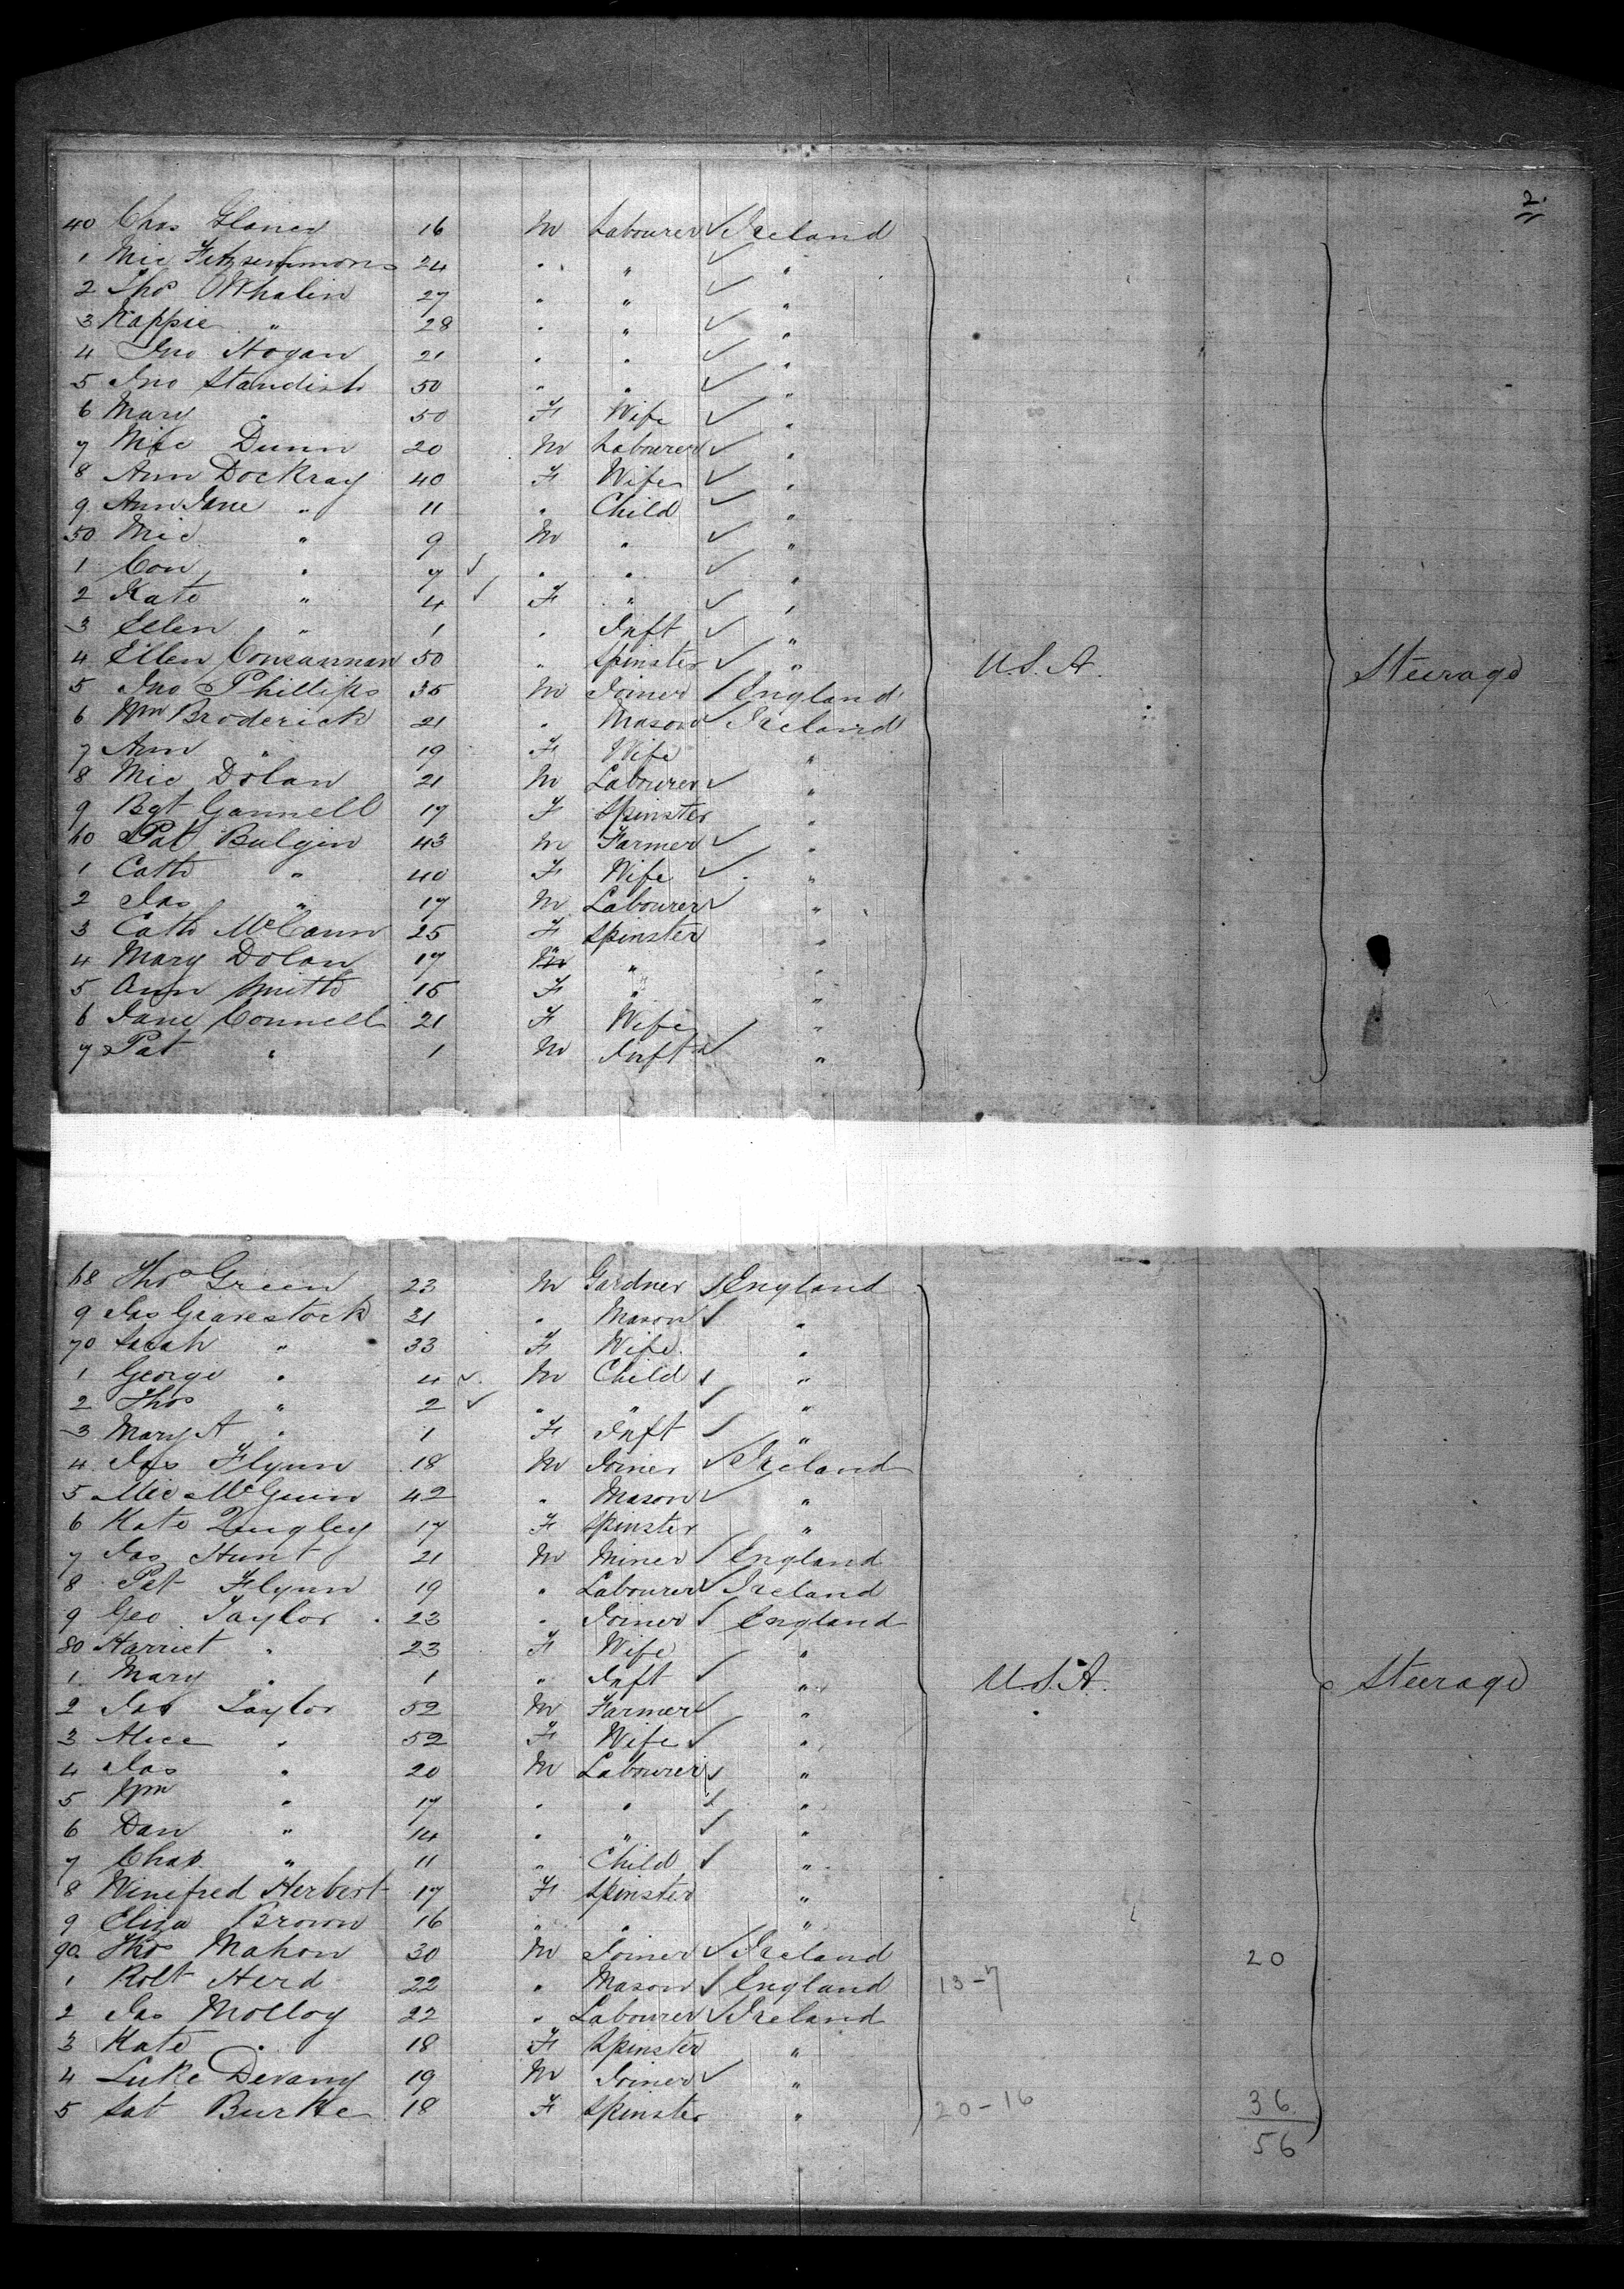 2.
40 Chas Glaner 16 M Labourer ✓ Ireland
1 Mic Fitzsimmons 24 " " ✓ "
2 Thos Whalin 27 " " ✓ "
3 Kappie " 28 " " ✓ "
4 Jno Hogan 21 " " ✓ "
5 Jno Standish 50 " " ✓ "
6 Mary " 50 F Wife ✓ "
7 Mic Dunn 20 M Labourer ✓ "
8 Ann Dockray 40 F Wife ✓ "
9 Ann Jane " 11 " Child ✓ "
50 Mic " 9 M " ✓ "
1 Con " 7 ✓ " " ✓ "
2 Kate " 4 ✓ F " ✓ "
3 Ellen " 1 " Inft ✓ "
4 Ellen Concannan 50 " Spinster ✓ " U.S.A. Steerage
5 Jno Phillips 35 M Joiner ✓ England
6 Wm Broderick 21 " Mason ✓ Ireland
7 Ann " 19 F Wife "
8 Mic Dolan 21 M Labourer ✓ "
9 Bgt Gannell 17 F Spinster "
60 Pat Bulgin 43 M Farmer ✓ "
1 Cath " 40 F Wife ✓ "
2 Jas " 17 M Labourer ✓ "
3 Cath McCann 25 F Spinster "
4 Mary Dolan 17 " "
5 Ann Smith 15 F " "
6 Jane Connell 21 F Wife "
7 Pat " 1 M Inft ✓ "
68 Thos Green 23 M Gardner ✓ England
9 Jas Gravestock 31 " Mason ✓ "
70 Sarah " 33 F Wife "
1 George " 4 ✓ M Child ✓ "
2 Thos " 2 ✓ " " ✓ "
3 Mary A " 1 F Inft ✓ "
4 Jas Flynn 18 M Joiner ✓ Ireland
5 Mic McGuin 42 " Mason ✓ "
6 Kate Quigley 17 F Spinster "
7 Jas Hunt 21 M Miner ✓ England
8 Pat Flynn 19 " Labourer ✓ Ireland
9 Geo Taylor 23 " Joiner ✓ England
80 Harriet " 23 F Wife "
1 Mary " 1 " Inft ✓ " U.S.A. Steerage
2 Jas Taylor 52 M Farmer ✓ "
3 Alice " 52 F Wife ✓ "
4 Jas " 20 M Labourer ✓ "
5 Wm " 17 " " ✓ "
6 Dan " 14 " " ✓ "
7 Chas " 11 " Child ✓ "
8 Winifred Herbert 17 F Spinster "
9 Eliza Brown 16 " " "
90 Thos Mahon 30 M Joiner ✓ Ireland 20
1 Robt Herd 22 " Mason ✓ England 13-7
2 Jas Molloy 22 " Labourer ✓ Ireland
3 Kate " 18 F Spinster "
4 Luke Devany 19 M Joiner ✓ "
5 Sat Burke 18 F Spinster " 20-16 36
56